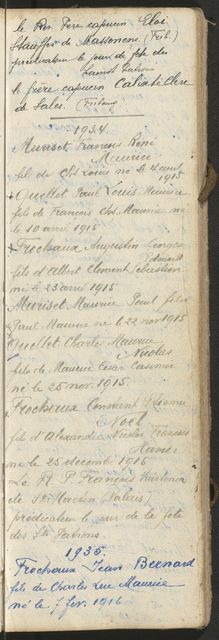 le Rév. Père capucin Eloi
Stauffer de Massonens. (Frib.)
prédicateur le jour de fête des
Saints Patrons
le frère capucin Calixte Clerc
de Sales. (Fribourg
1934.
Muriset François René
Maurice
fils de Chs Louis né le 4 avril
1915
+ Quellet Paul Louis Maurice
fils de François Chs. Maurice né
le 10 avril 1915
+ Frochaux Augustin Georges
fils d'Albert Clément Sébastien
né le 23 avril 1915
Muriset Maurice Paul fils
Paul Maurice né le 22 nov 1915
Quellet Charles Maurice
Nicolas
fils de Maurice César Casimir
né le 25 nov. 1915.
Frochaux Constant
Noël
fils d'Alexandre Nicolas François
Xavier
né le 25 décemb 1915
Le R. P. François
de St. Martin (Valais)
prédicateur le jour de la fête
des Sts Patrons
1935.
Frochaux Jean Bernard
fils de Charles Luc Maurice
né le 7 fév. 1916